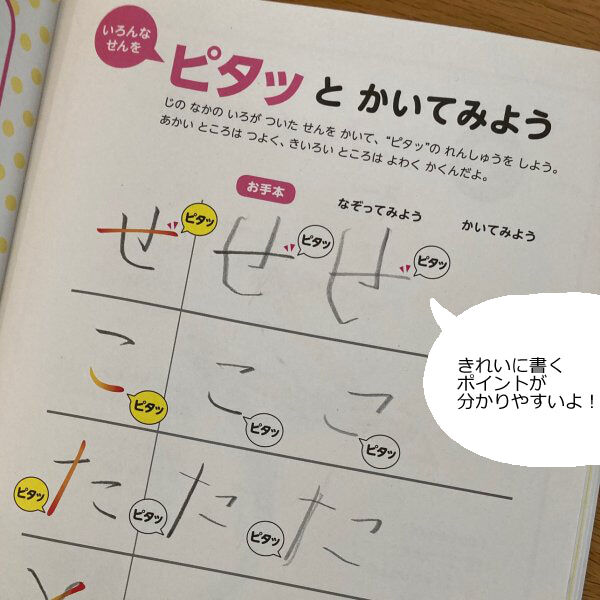 いろんな
せんを
ピタッ と かいてみよう
じの なかの いろが ついた せんを かいて、“ピタッ”の れんしゅうを しよう。
あかい ところは つよく、きいろい ところは よわく かくんだよ。
お手本
なぞってみよう
かいてみよう
せ ピタッ せ ピタッ せ ピタッ
こ ピタッ こ ピタッ こ ピタッ
ピタッ た こ ピタッ た こ ピタッ た こ
きれいに書く
ポイントが
分かりやすいよ！